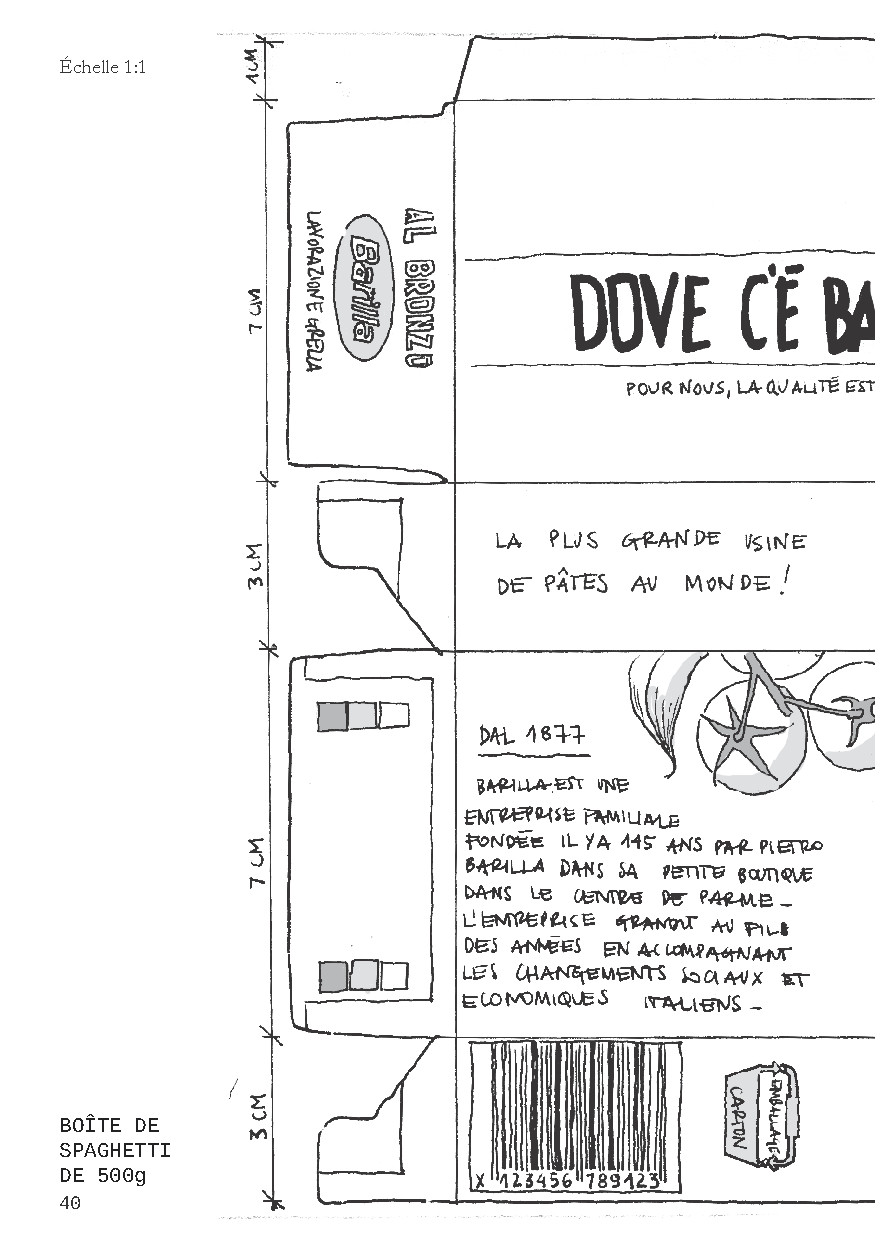 Échelle 1:1
1 CM
7 CM
AL BRONZO
Barilla
LAVORAZIONE GRELLA
DOVE C'È BA
POUR NOUS, LA QUALITÉ EST
3 CM
LA PLUS GRANDE USINE
DE PÂTES AU MONDE!
7 CM
DAL 1877
BARILLA EST UNE
ENTREPRISE FAMILIALE
FONDÉE IL Y A 145 ANS PAR PIETRO
BARILLA DANS SA PETITE BOUTIQUE
DANS LE CENTRE DE PARME_
L'ENTREPRISE GRANDIT AU FIL
DES ANNÉES EN ACCOMPAGNANT
LES CHANGEMENTS SOCIAUX ET
ECONOMIQUES ITALIENS_
3 CM
X 123456 789123
CARTON
EMBALLAGE
BOÎTE DE
SPAGHETTI
DE 500g
40